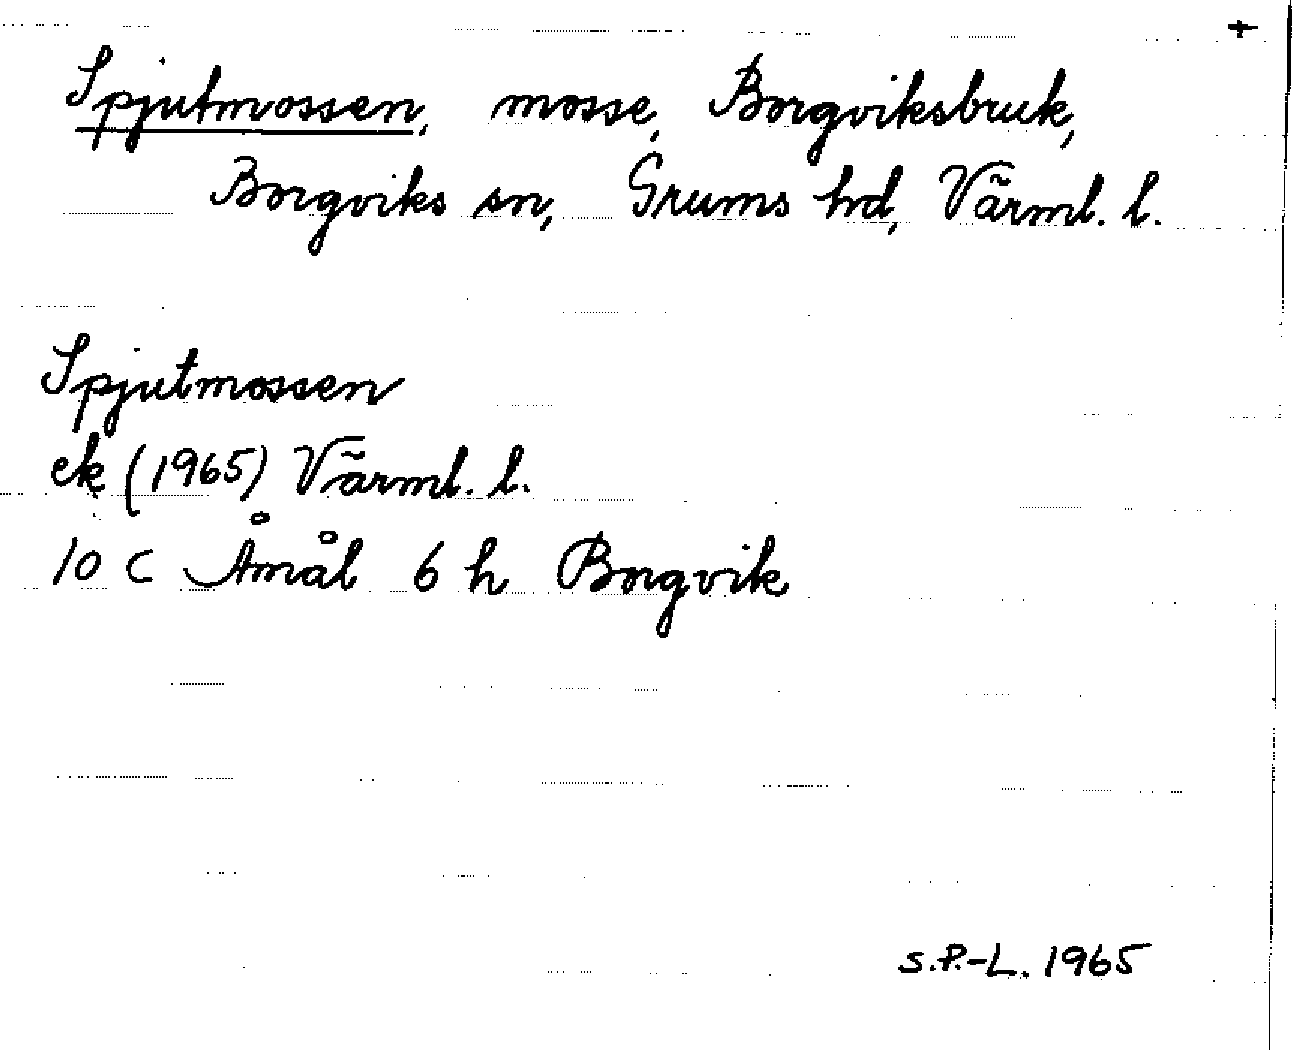 +
Spjutmossen, mosse, Borgviksbruk,
Borgviks sn, Grums hd, Värml. l.
Spjutmossen
ek (1965) Värml. l.
10 C Åmål 6 h Borgvik
S.P.-L. 1965